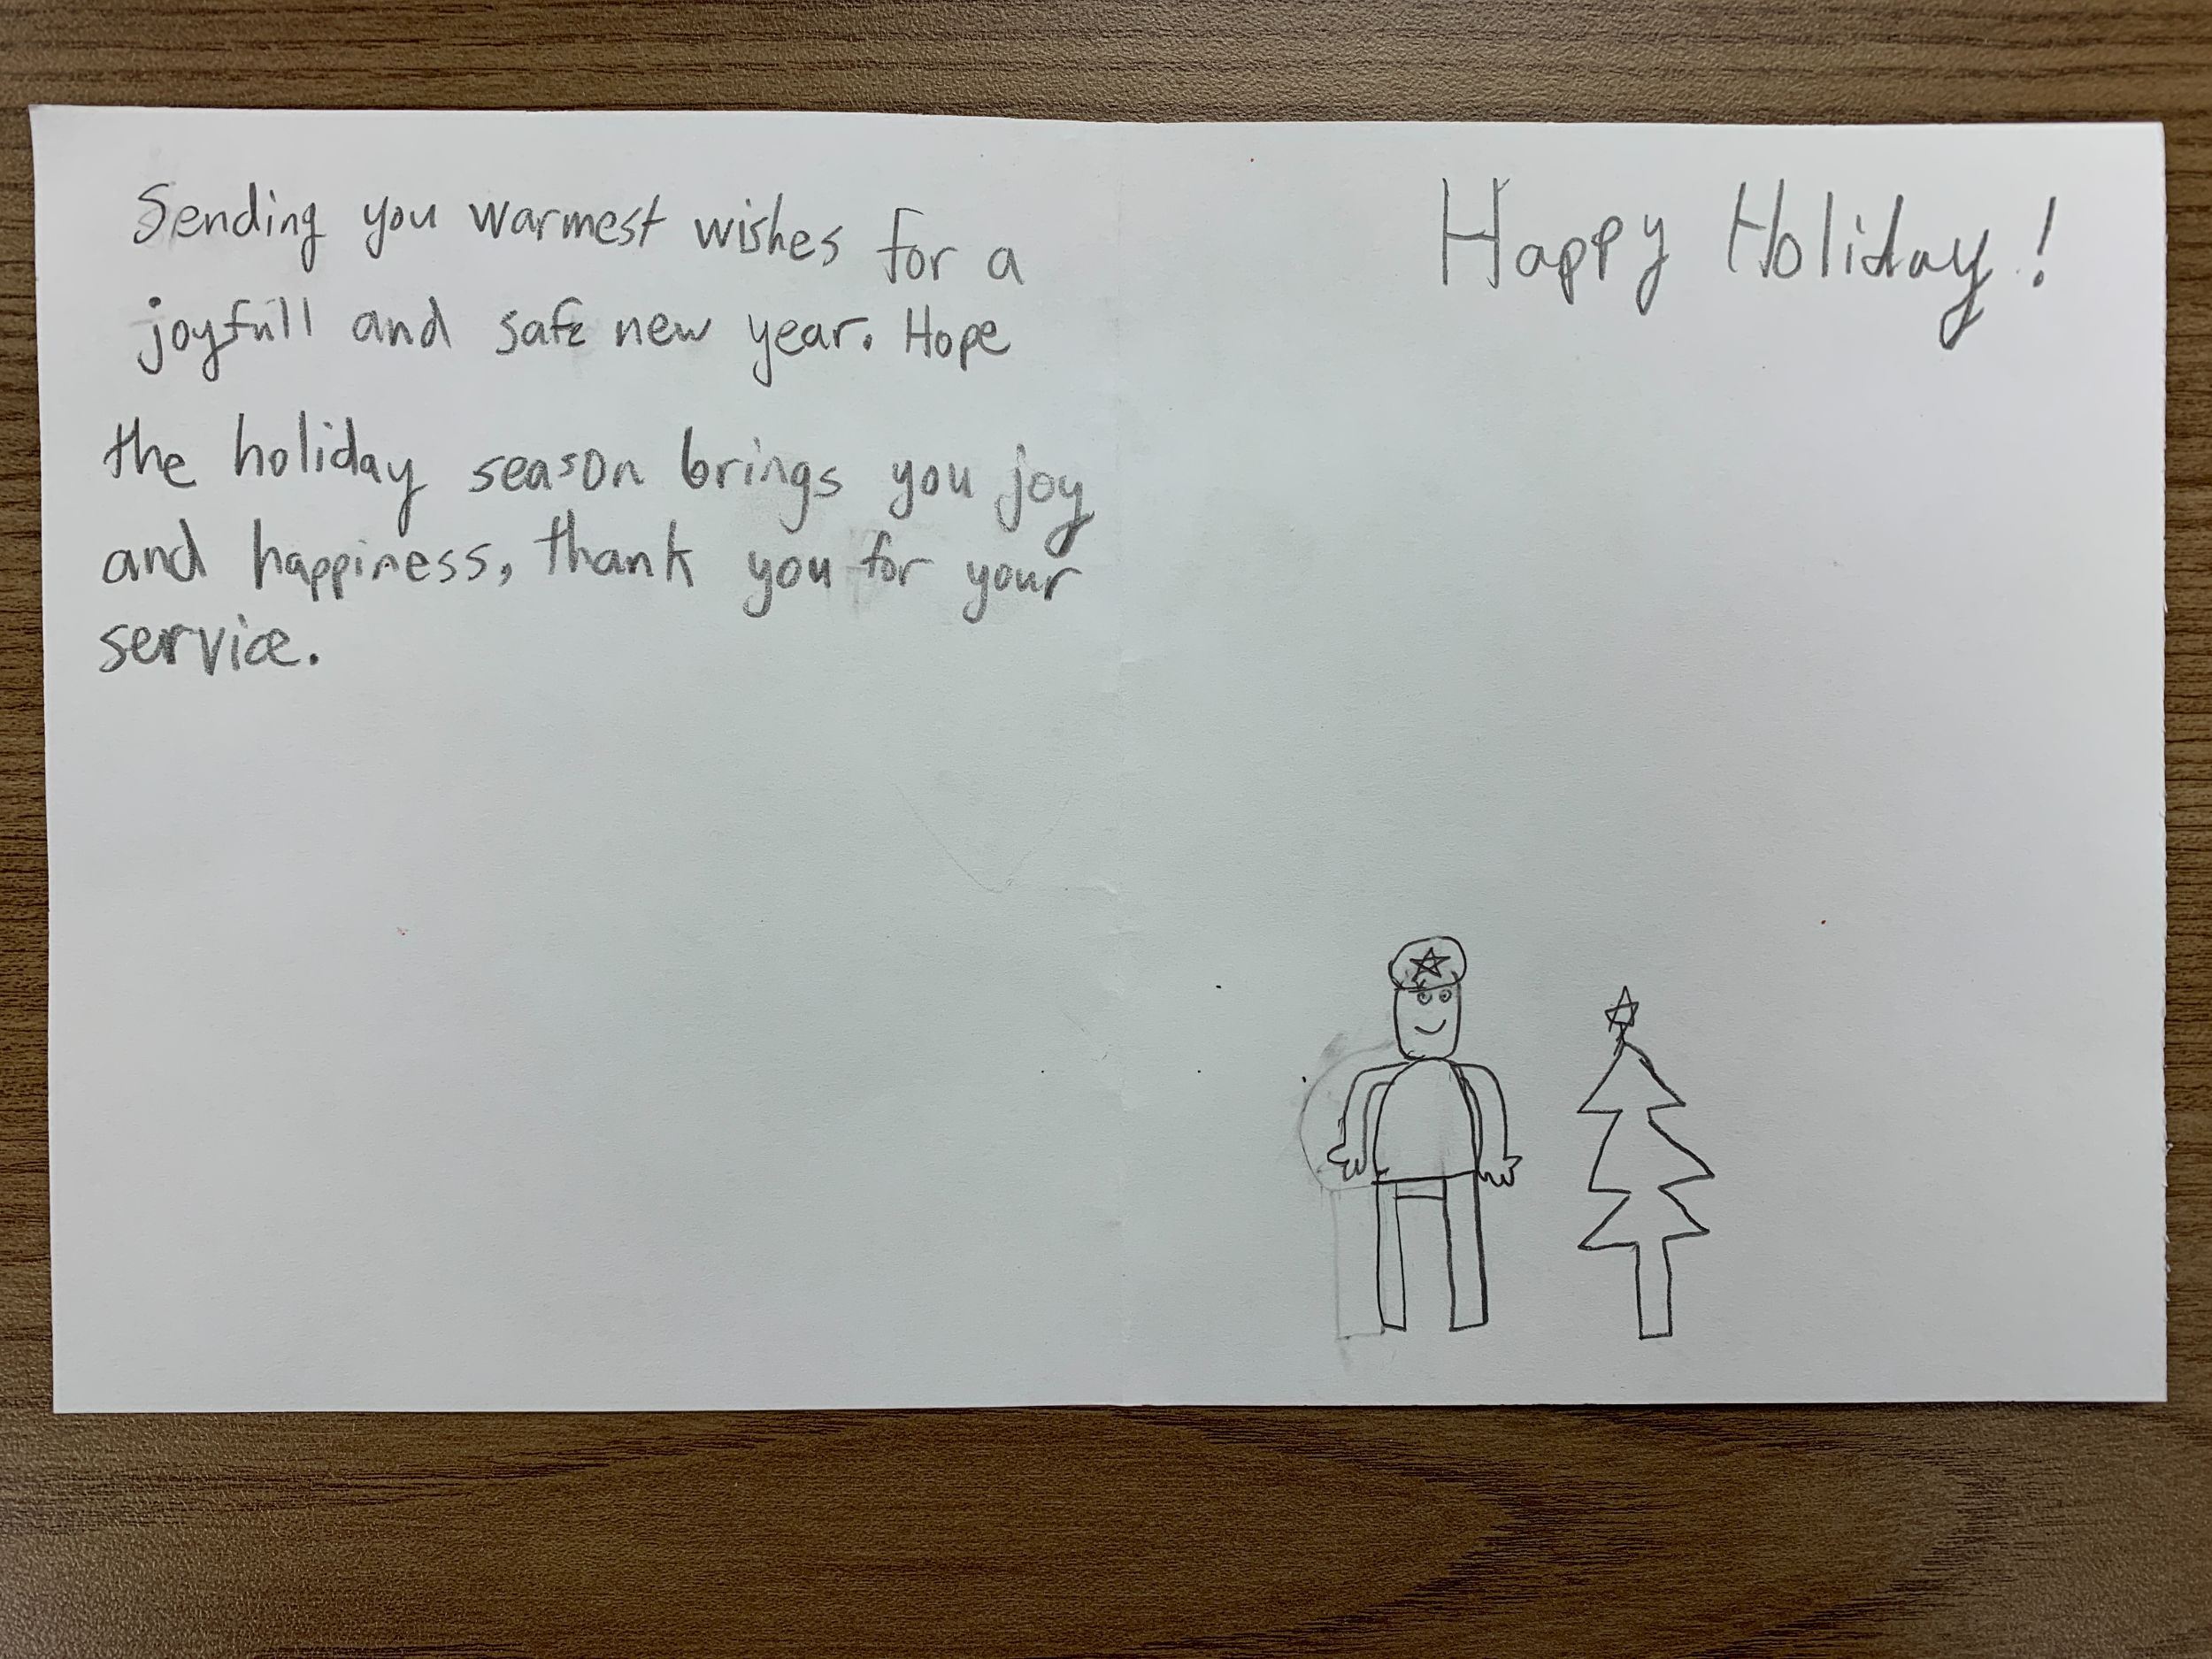 Sending you warmest wishes for a
joyfull and safe new year. Hope
the holiday season brings you joy
and happiness, thank you for your
service.
Happy Holiday!